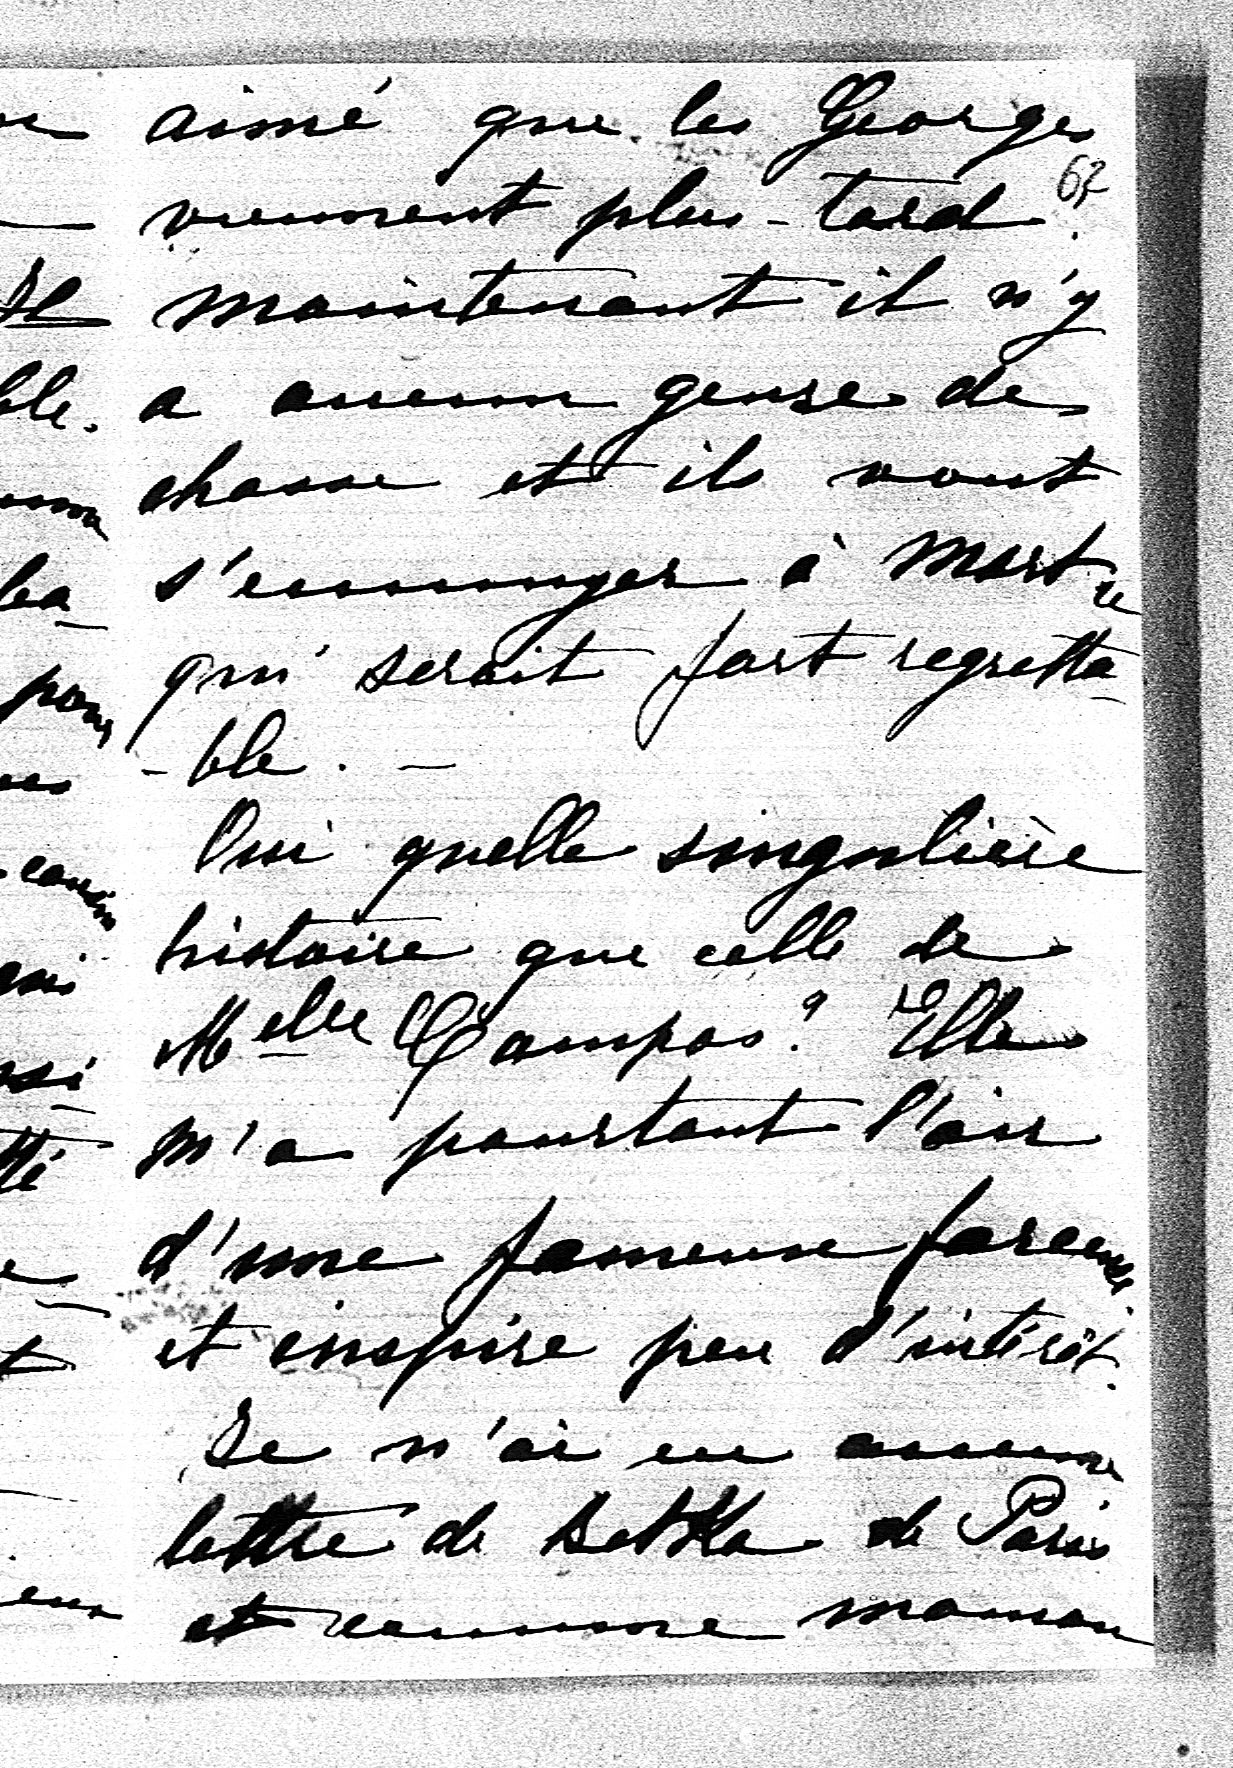 aimé que les Georges
67
viennent plus-tard.
maintenant il n'y
a aucun genre de
chasse et ils vont
s'ennuyer à mort ce
qui serait fort regretta-
-ble. -
Oui quelle singulière
histoire que celle de
Melle Campos? Elle
m'a pourtant l'air
d'une fameuse farceuse
et inspire peu d'intérêt.
Je n'ai eu aucune
lettre de Betka de Paris
et comme maman